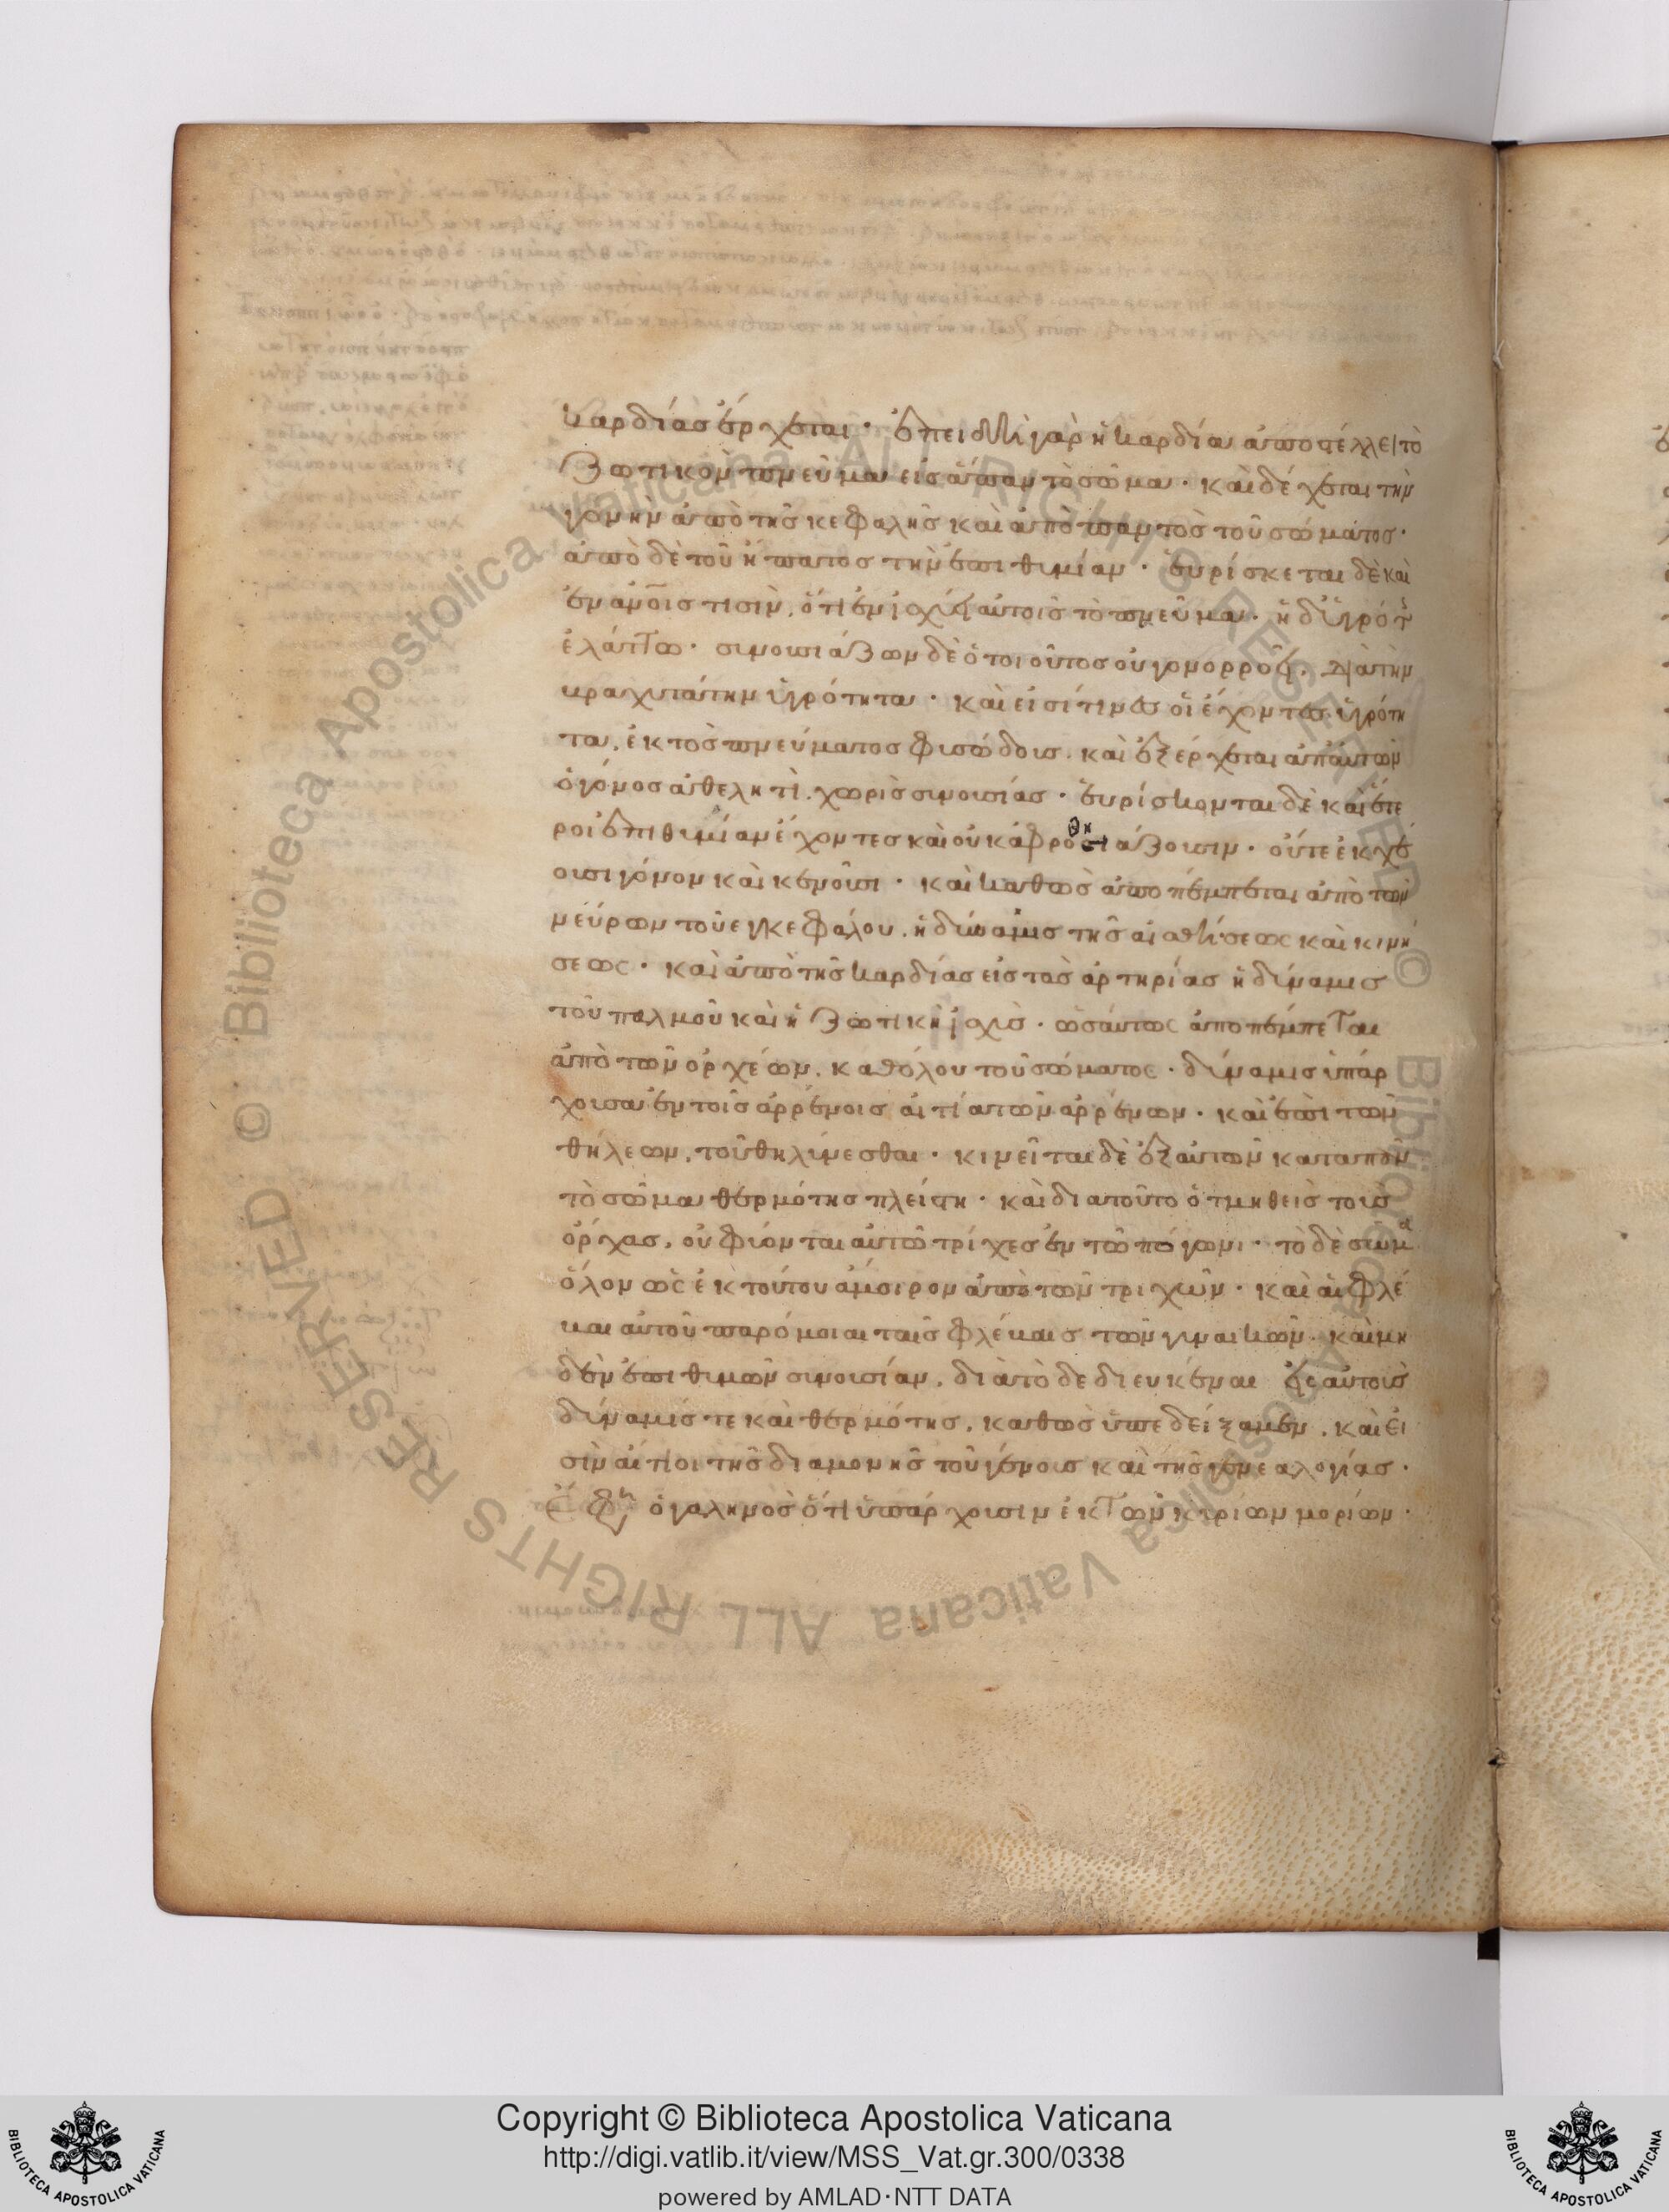 καρδίας έρχεται· ἐπειδὴ γὰρ ἡ καρδία ἀποστέλλει τὸ
ζωτικὸν πνεῦμα εἰς ἅπαν τὸ σῶμα· καὶ δέχεται τὴν
γονὴν ἀπὸ τῆς κεφαλῆς καὶ ἀπὸ παντὸς τοῦ σώματος·
ἀπὸ δὲ τοῦ ἥπατος τὴν ἐπιθυμίαν· εὑρίσκεται δὲ καὶ
ἐν ἀνοις τισὶν, ὅτι ἐνισχύει αὐτοῖς τὸ πνεῦμα· ἡ δ ὑγρότης
ἐλάττω· συνουσιάζων δὲ ὁ τοιοῦτος οὐ γονορροεῖ· διὰ τὴν
βραχυτάτην ὑγρότητα· καὶ εἰσί τινες οἱ έχοντες ὑγρότη
τα, ἐκτὸς πνεύματος φυσώδους· καὶ ἐξέρχεται ἀπ αὐτῶν
ὁ γόνος ἀθελητὶ χωρὶς συνουσίας· εὑρίσκονται δὲ καὶ ἕτε
ροι ἐπιθυμίαν έχοντες καὶ οὐκ ἀφροσιάζουσιν· οὔτε ἐκχέ
θη
ουσι γόνον καὶ κενοῦσι· καὶ καθὼς ἀποπέμπεται ἀπὸ τῶν
νεύρων τοῦ εγκεφάλου, ἡ δύναμις τῆς αἰσθήσεως καὶ κινή
σεως· καὶ ἀπὸ τῆς καρδίας εἰς τὰς ἀρτηρίας ἡ δύναμις
τοῦ παλμοῦ καὶ ἡ ζωτικὴ ἰσχὺς· ὡσαύτως ἀποπέμπεται
ἀπὸ τῶν ὀρχέων, καθόλου τοῦ σώματος· δύναμις ὑπάρ
χουσα ἐν τοῖς ἀρρένοις αἰτία τῶν ἀρρένων· καὶ ἐπὶ τῶν
θήλεων, τοῦ θηλύνεσθαι· κινεῖται δὲ ἐξ αὐτῶν κατὰ πᾶν
τὸ σῶμα θερμότης πλείστη· καὶ διατοῦτο ὁ τμηθεὶς τοὺς
ὄρχας, οὐ φύονται αὐτῶ τρίχες ἐν τῶ πώγωνι· τὸ δὲ σῶμα
ὅλον ὡς ἐκ τούτου ἄμοιρον ἀπὸ τῶν τριχῶν· καὶ αἱ φλέ
βαι αὐτοῦ παρόμοιαι ταῖς φλέβαις τῶν γυναικῶν· καὶ μη
δὲν ἐπιθυμῶν συνουσίαν, διὰ τὸ δεδιευκέναι ἐξ αὐτοῖς
δύναμίς τε καὶ θερμότης, καθὼς ὑπεδείξαμεν, καὶ εἰ
σὶν αἴτιοι τῆς διαμονῆς τοῦ γένους καὶ τῆς γενεαλογίας·
ἔφη ὁ γαληνὸς ὅτι ὑπάρχουσιν ἐκ τῶν κυρίων μορίων·
Copyright © Biblioteca Apostolica Vaticana
http://digi.vatlib.it/view/MSS_Vat.gr.300/0338
powered by AMLAD·NTT DATA
BIBLIOTECA APOSTOLICA VATICANA
BIBLIOTECA APOSTOLICA VATICANA
© Biblioteca Apostolica Vaticana ALL RIGHTS RESERVED © Biblioteca Apostolica Vaticana ALL RIGHTS RESERVED